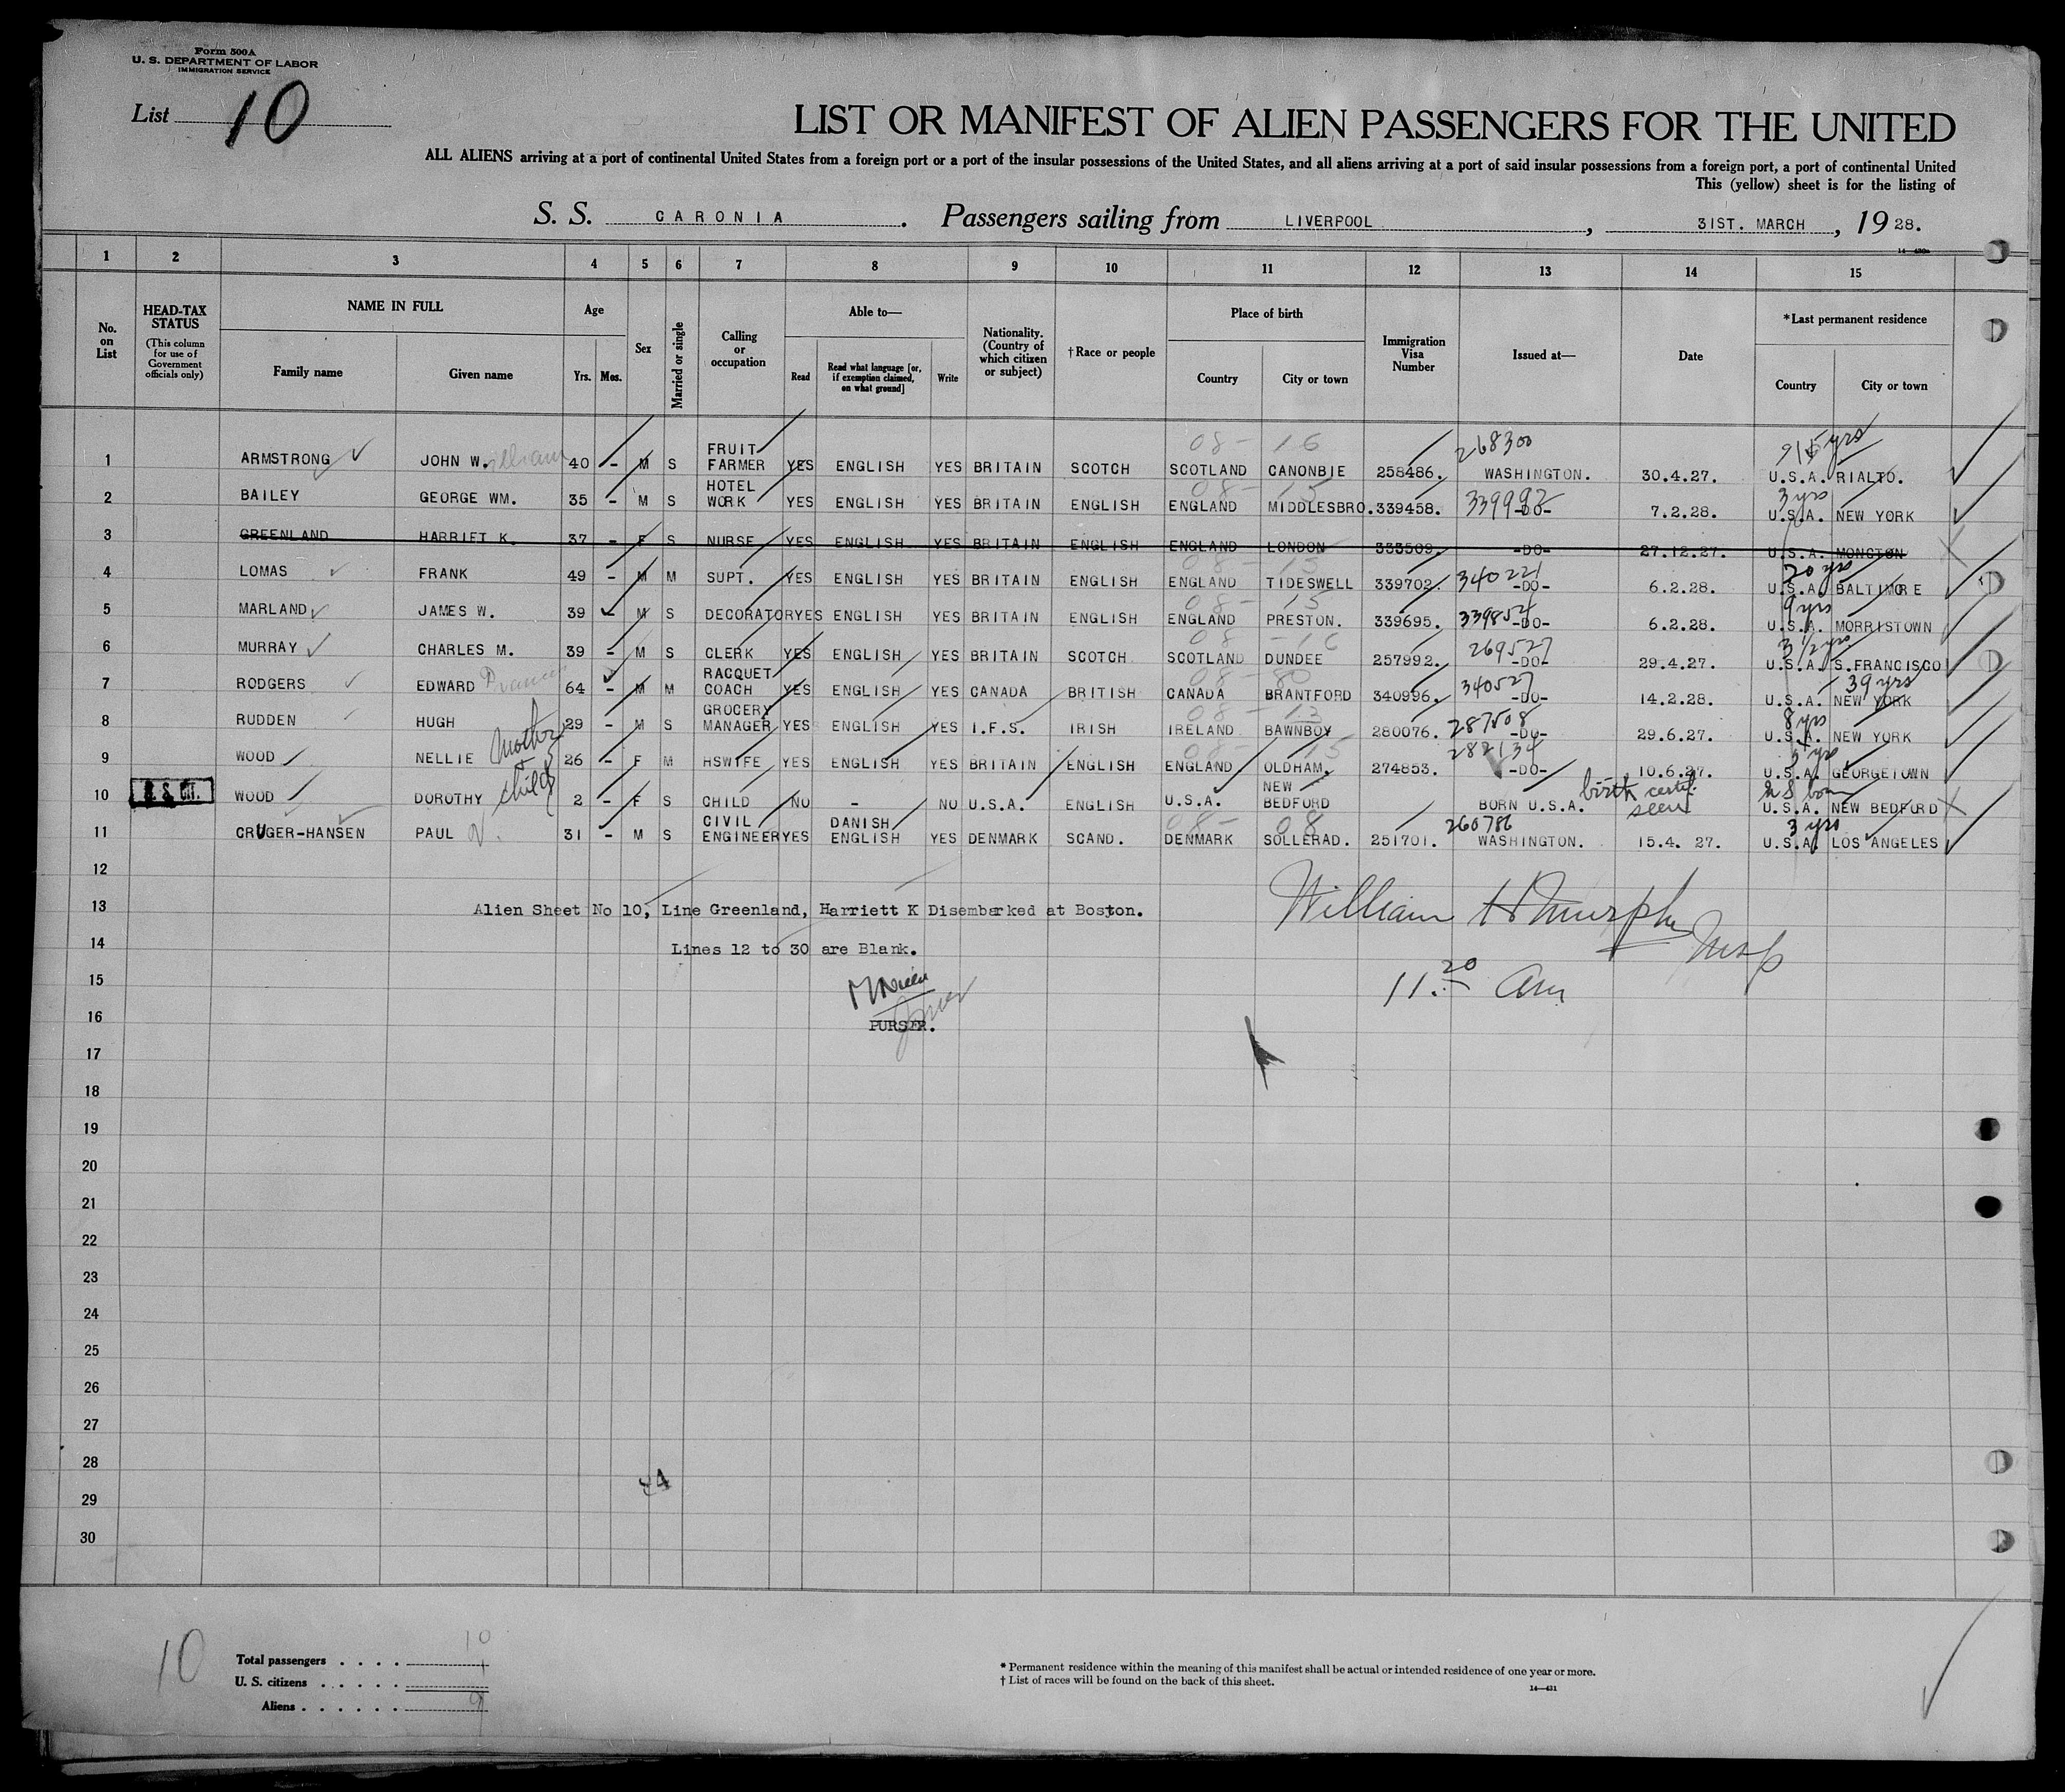 Form 500A
U. S. DEPARTMENT OF LABOR
IMMIGRATION SERVICE
List 10
LIST OR MANIFEST OF ALIEN PASSENGERS FOR THE UNITED
ALL ALIENS arriving at a port of continental United States from a foreign port or a port of the insular possessions of the United States, and all aliens arriving at a port of said insular possessions from a foreign port, a port of continental United
This (yellow) sheet is for the listing of
S. S. CARONIA. Passengers sailing from LIVERPOOL, 31ST. MARCH, 1928.
1 2 3 4 5 6 7 8 9 10 11 12 13 14 15
No. on List
HEAD-TAX STATUS
(This column for use of Government officials only)
NAME IN FULL
Family name
Given name
Age
Yrs. Mos.
Sex
Married or single
Calling or occupation
Able to—
Read
Read what language [or, if exemption claimed, on what ground]
Write
Nationality. (Country of which citizen or subject)
†Race or people
Place of birth
Country
City or town
Immigration Visa Number
Issued at—
Date
*Last permanent residence
Country
City or town
1 ARMSTRONG JOHN W. William 40 - M S FRUIT FARMER YES ENGLISH YES BRITAIN SCOTCH 08- 16 SCOTLAND CANONBIE 258486. 268300 WASHINGTON. 30.4.27. U.S.A. RIALTO.
2 BAILEY GEORGE WM. 35 - M S HOTEL WORK YES ENGLISH YES BRITAIN ENGLISH 08- 15 ENGLAND MIDDLESBRO. 339458. 339992 -DO- 7.2.28. 3 yrs U.S.A. NEW YORK
3 GREENLAND HARRIET K. 37 - F S NURSE YES ENGLISH YES BRITAIN ENGLISH ENGLAND LONDON 333509. -DO- 27.12.27. U.S.A. MONCTON
4 LOMAS FRANK 49 - M M SUPT. YES ENGLISH YES BRITAIN ENGLISH 08- 15 ENGLAND TIDESWELL 339702. 340221 -DO- 6.2.28. 20 yrs U.S.A. BALTIMORE
5 MARLAND JAMES W. 39 - M S DECORATOR YES ENGLISH YES BRITAIN ENGLISH 08- 15 ENGLAND PRESTON. 339695. 339854 -DO- 6.2.28. 9 yrs U.S.A. MORRISTOWN
6 MURRAY CHARLES M. 39 - M S CLERK YES ENGLISH YES BRITAIN SCOTCH 08 -16 SCOTLAND DUNDEE 257992. 269527 -DO- 29.4.27. 3 1/2 yrs. U.S.A. S.FRANCISCO
7 RODGERS EDWARD Francis 64 - M M RACQUET COACH YES ENGLISH YES CANADA BRITISH 08- 80 CANADA BRANTFORD 340996. 340527 -DO- 14.2.28. 39 yrs U.S.A. NEW YORK
8 RUDDEN HUGH 29 - M S GROCERY MANAGER YES ENGLISH YES I.F.S. IRISH 08- 13 IRELAND BAWNBOY 280076. 287508 -DO- 29.6.27. 8 yrs U.S.A. NEW YORK
9 WOOD NELLIE Mother & 26 - F M HSWIFE YES ENGLISH YES BRITAIN ENGLISH 08- 15 ENGLAND OLDHAM. 274853. 282134 -DO- 10.6.27. 5 yrs U.S.A. GEORGETOWN
10 WOOD DOROTHY child 2 - F S CHILD NO - NO U.S.A. ENGLISH U.S.A. NEW BEDFORD BORN U.S.A. birth certif. seen U S born U.S.A. NEW BEDFORD
11 CRUGER-HANSEN PAUL N. 31 - M S CIVIL ENGINEER YES DANISH ENGLISH YES DENMARK SCAND. 08- 08 DENMARK SOLLERAD. 251701. 260786 WASHINGTON. 15.4. 27. 3 yrs U.S.A. LOS ANGELES
12
13 Alien Sheet No 10, Line Greenland, Harriett K Disembarked at Boston. William H Murphy Insp
14 Lines 12 to 30 are Blank.
15 11.20 am
16 PURSER.
17
18
19
20
21
22
23
24
25
26
27
28
29
30
10
Total passengers . . . . 10
U. S. citizens . . . . . 1
Aliens . . . . . . 9
* Permanent residence within the meaning of this manifest shall be actual or intended residence of one year or more.
† List of races will be found on the back of this sheet.
14—431